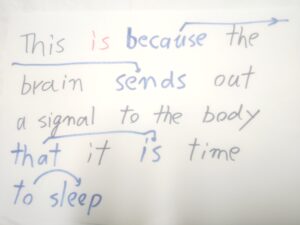 This is because the
brain sends out
a signal to the body
that it is time
to sleep